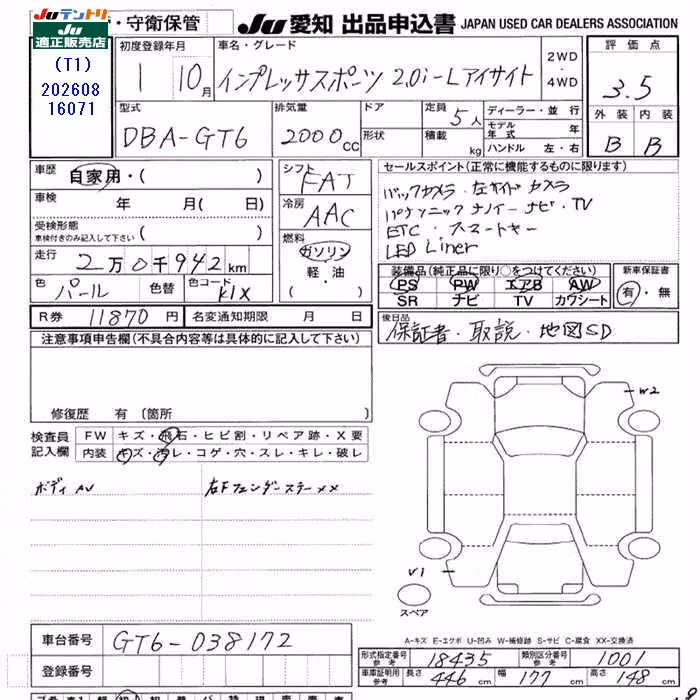 JUテントリ
JU適正販売店
・守衛保管
JU 愛知 出品申込書 JAPAN USED CAR DEALERS ASSOCIATION
(T1)
202608
16071
初度登録年月
1 10月
車名・グレード
インプレッサスポーツ 2.0i-Lアイサイト
2WD
・
4WD
評価点
3.5
外装 内装
B B
型式
DBA-GT6
排気量
2000cc
ドア
形状
定員 5人
積載 kg
ディーラー・並行
モデル年式 年
ハンドル 左・右
車歴 自家用・( )
車検 年 月( 日)
受検形態
車検付きのみ記入して下さい ( )
走行 2万0千942km
色 パール 色替 色コード K1X
シフト FAT
冷房 AAC
燃料
ガソリン
軽・油
( ・ )
セールスポイント(正常に機能するものに限ります)
バックカメラ 左サイドカメラ
パナソニック ナノイー ナビ・TV
ETC・スマートキー
LED Liner
装備品(純正品に限り○をつけてください)
PS PW エアB AW
SR ナビ TV カワシート
新車保証書
有・無
R券 11870円 名変通知期限 月 日
後日品
保証書・取説・地図SD
注意事項申告欄(不具合内容等は具体的に記入して下さい)
修復歴 有(箇所
検査員記入欄
FW キズ・飛石・ヒビ割・リペア跡・X要
内装 キズ・汚レ・コゲ・穴・スレ・キレ・破レ
ボディ AU
右Fフェンダーステー XX
W2
V1
スペア
A-キズ E-エクボ U-凹み W-補修跡 S-サビ C-腐食 XX-交換済
車台番号 GT6-038172
登録番号
形式指定番号 参考 18435 類別区分番号 参考 1001
車庫証明用 参考 長さ 446cm 幅 177cm 高さ 148cm